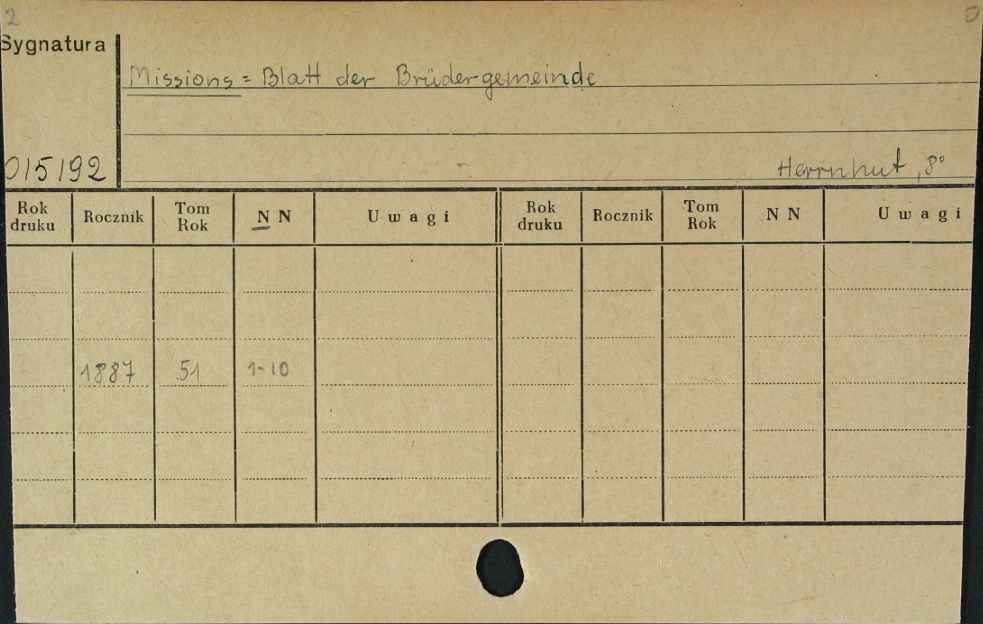 2
Sygnatura
Missions = Blatt der Brüdergemeinde
015192
Herrnhut, 8°
Rok druku Rocznik Tom Rok N N Uwagi Rok druku Rocznik Tom Rok N N Uwagi
1887 51 1-10